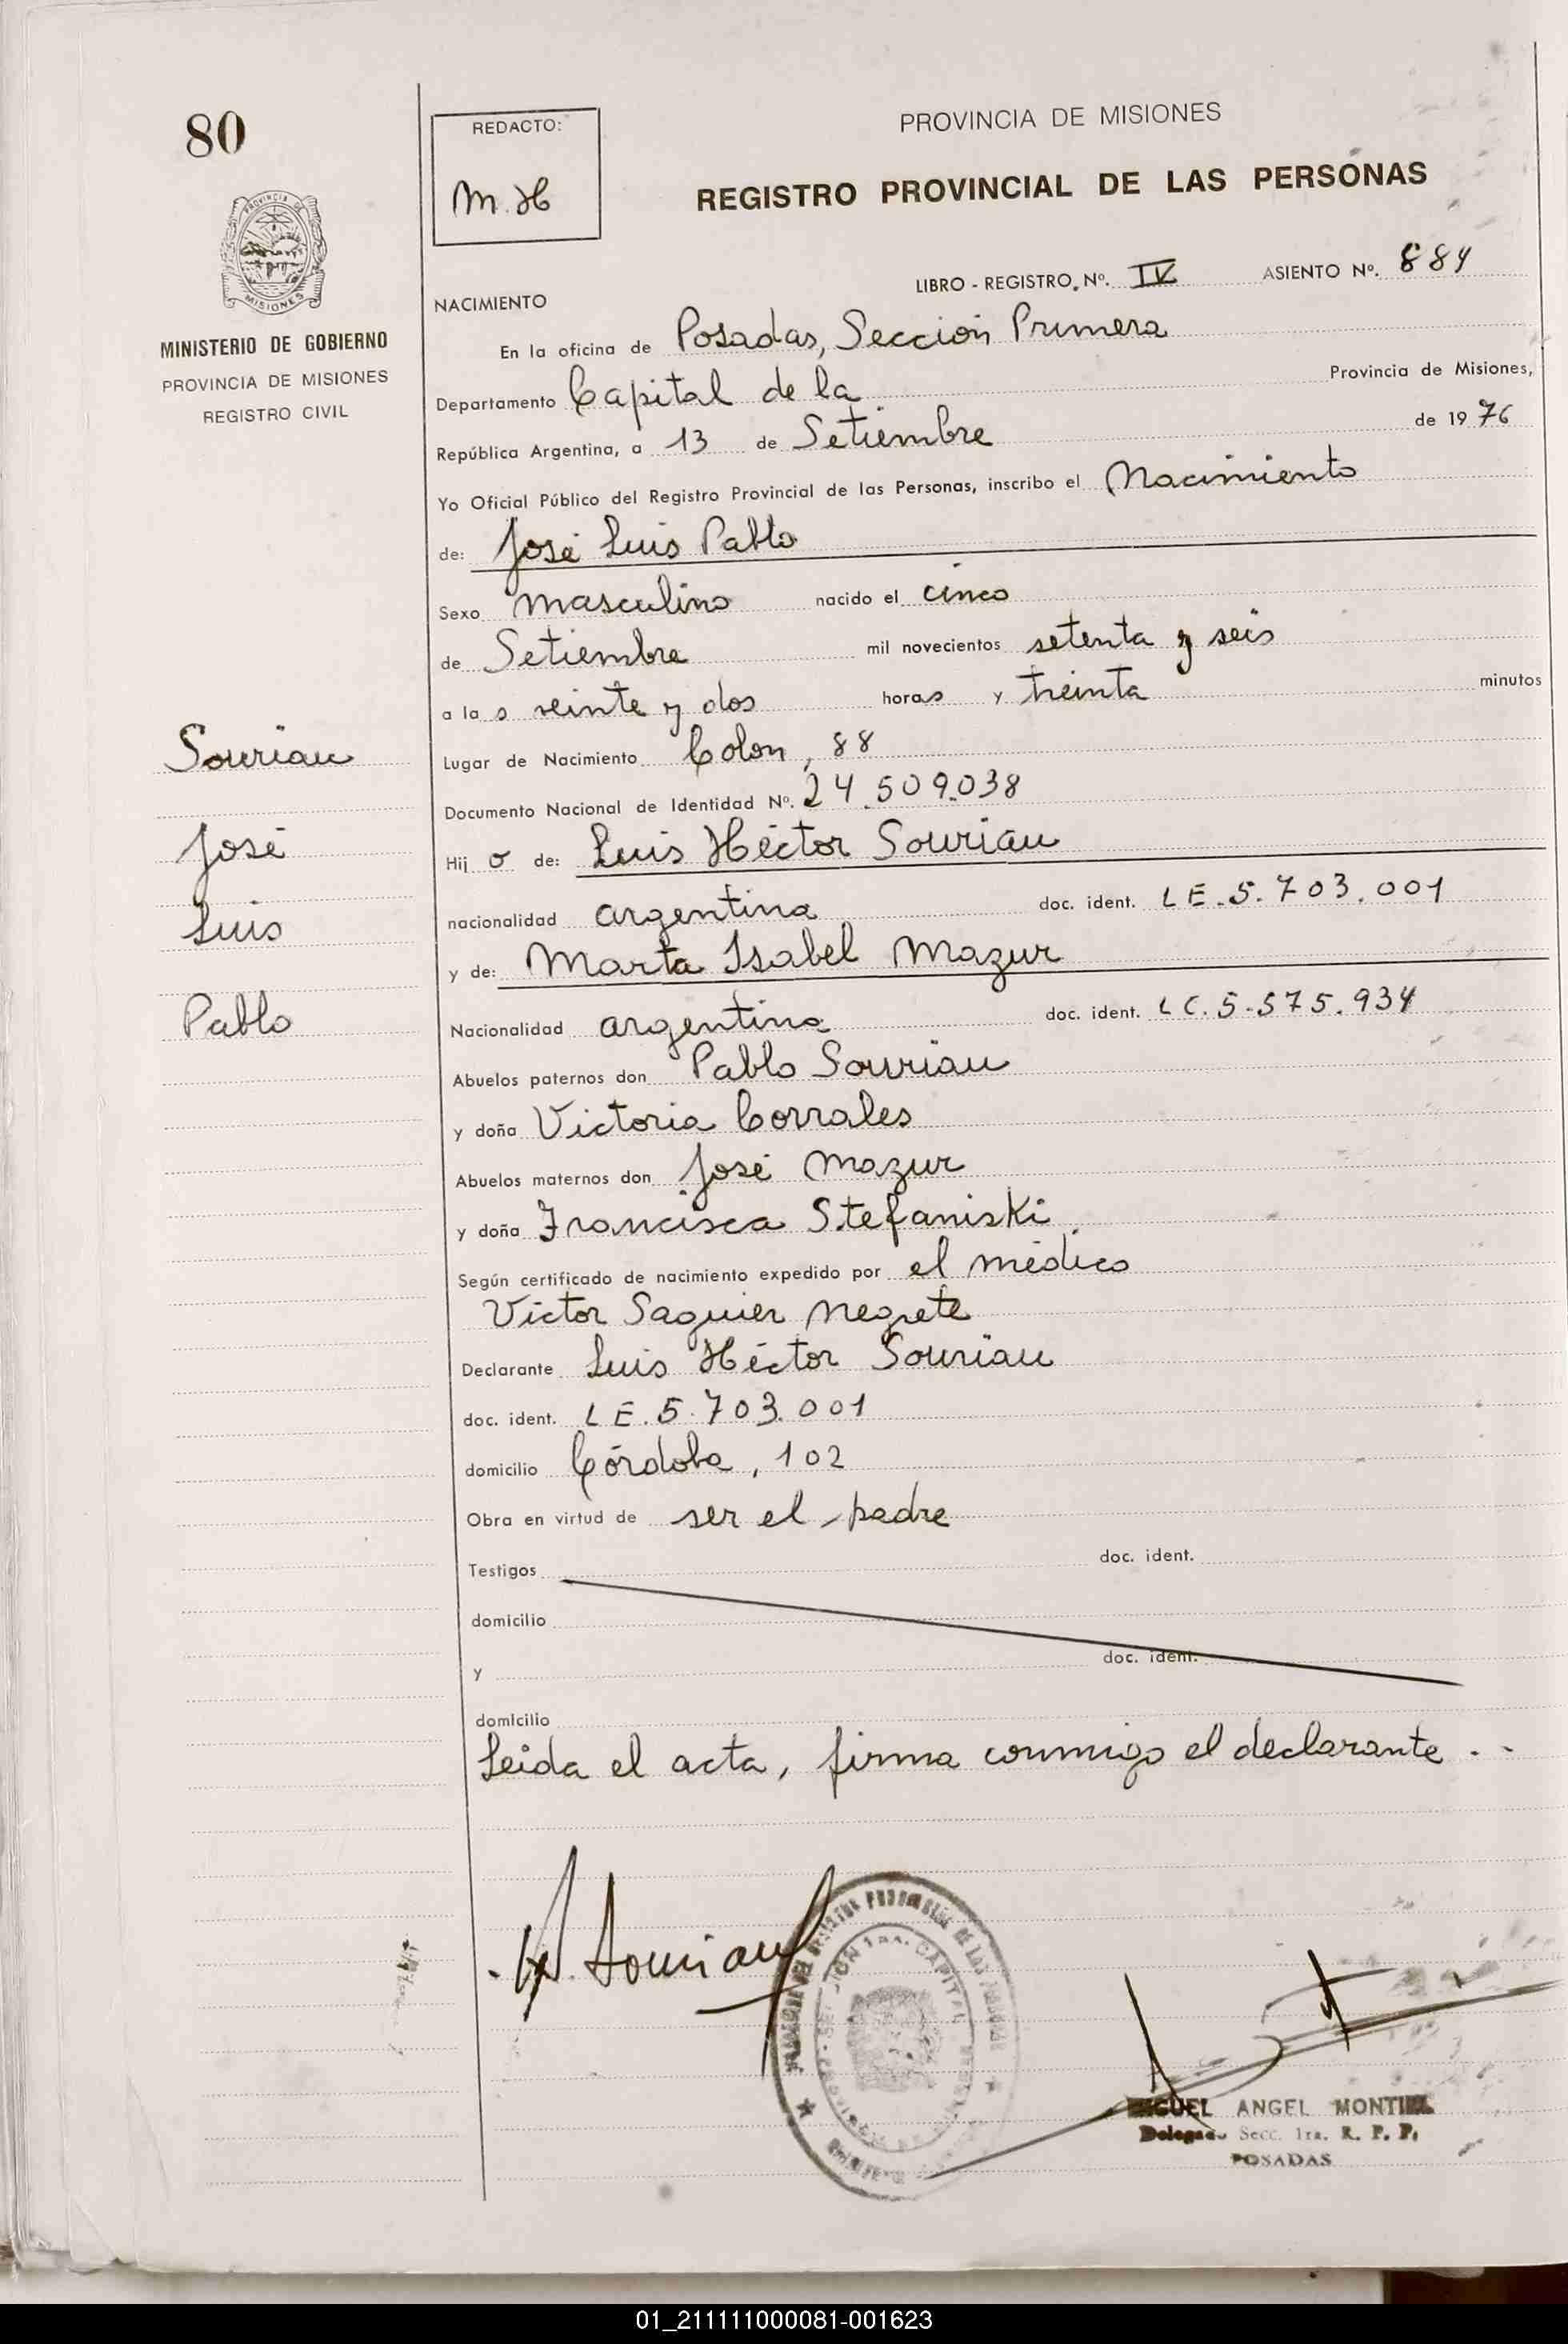 80
REDACTO:
M. H
PROVINCIA DE MISIONES
REGISTRO PROVINCIAL DE LAS PERSONAS
LIBRO - REGISTRO, Nº. IV ASIENTO Nº. 884
MISIONES
MINISTERIO DE GOBIERNO
PROVINCIA DE MISIONES
REGISTRO CIVIL
NACIMIENTO
En la oficina de Posadas, Sección Primera
Departamento Capital de la Provincia de Misiones,
República Argentina, a 13 de Setiembre de 1976
Yo Oficial Público del Registro Provincial de las Personas, inscribo el Nacimiento
de: José Luis Pablo
Sexo masculino nacido el cinco
de Setiembre mil novecientos setenta y seis
a la s veinte y dos horas y treinta minutos
Sourian
José
Luis
Pablo
Lugar de Nacimiento Colon, 88
Documento Nacional de Identidad Nº. 24.509.038
Hij o de: Luis Héctor Sourian
nacionalidad argentina doc. ident. L E. 5.703.001
y de: Marta Isabel Mazur
Nacionalidad argentina doc. ident. L C. 5.575.934
Abuelos paternos don Pablo Sourian
y doña Victoria Corrales
Abuelos maternos don José Mazur
y doña Francisca Stefaniski
Según certificado de nacimiento expedido por el médico
Victor Saguier Negrete
Declarante Luis Héctor Sourian
doc. ident. L E. 5.703.001
domicilio Córdoba, 102
Obra en virtud de ser el padre
Testigos doc. ident.
domicilio
y doc. ident.
domicilio
Leida el acta, firma conmigo el declarante . -
Sourian
SECCION 1ra. CAPITAL
MIGUEL ANGEL MONTIEL
Delegado Secc. 1ra. R. P. P.
POSADAS
01_211111000081-001623